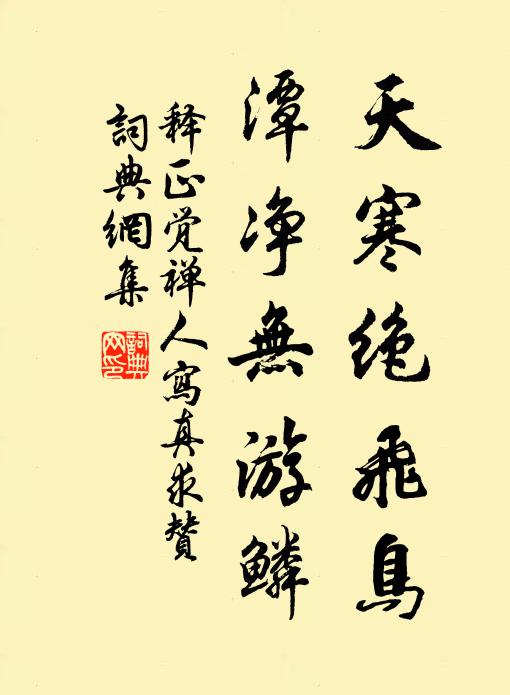 天寒绝飛鳥
潭净無游鱗
释正觉禅人寫真求贊
詞典網集
詞典网印